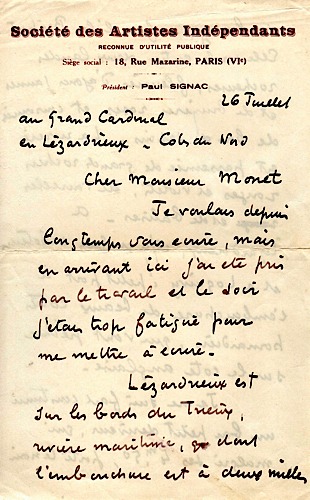 Société des Artistes Indépendants
RECONNUE D'UTILITÉ PUBLIQUE
Siège social : 18, Rue Mazarine, PARIS (VIe)
Président : Paul SIGNAC
26 Juillet
au Grand Cardinal
en Lézardrieux - Côts du Nord
Cher Monsieur Monet
Je voulais depuis
longtemps vous écrire, mais
en arrivant ici j'ai été pris
par le travail et le soir
j'étais trop fatigué pour
me mettre à écrire.
Lézardrieux est
sur les bords du Trieux,
rivière maritime, dont
l'embouchure est à deux milles